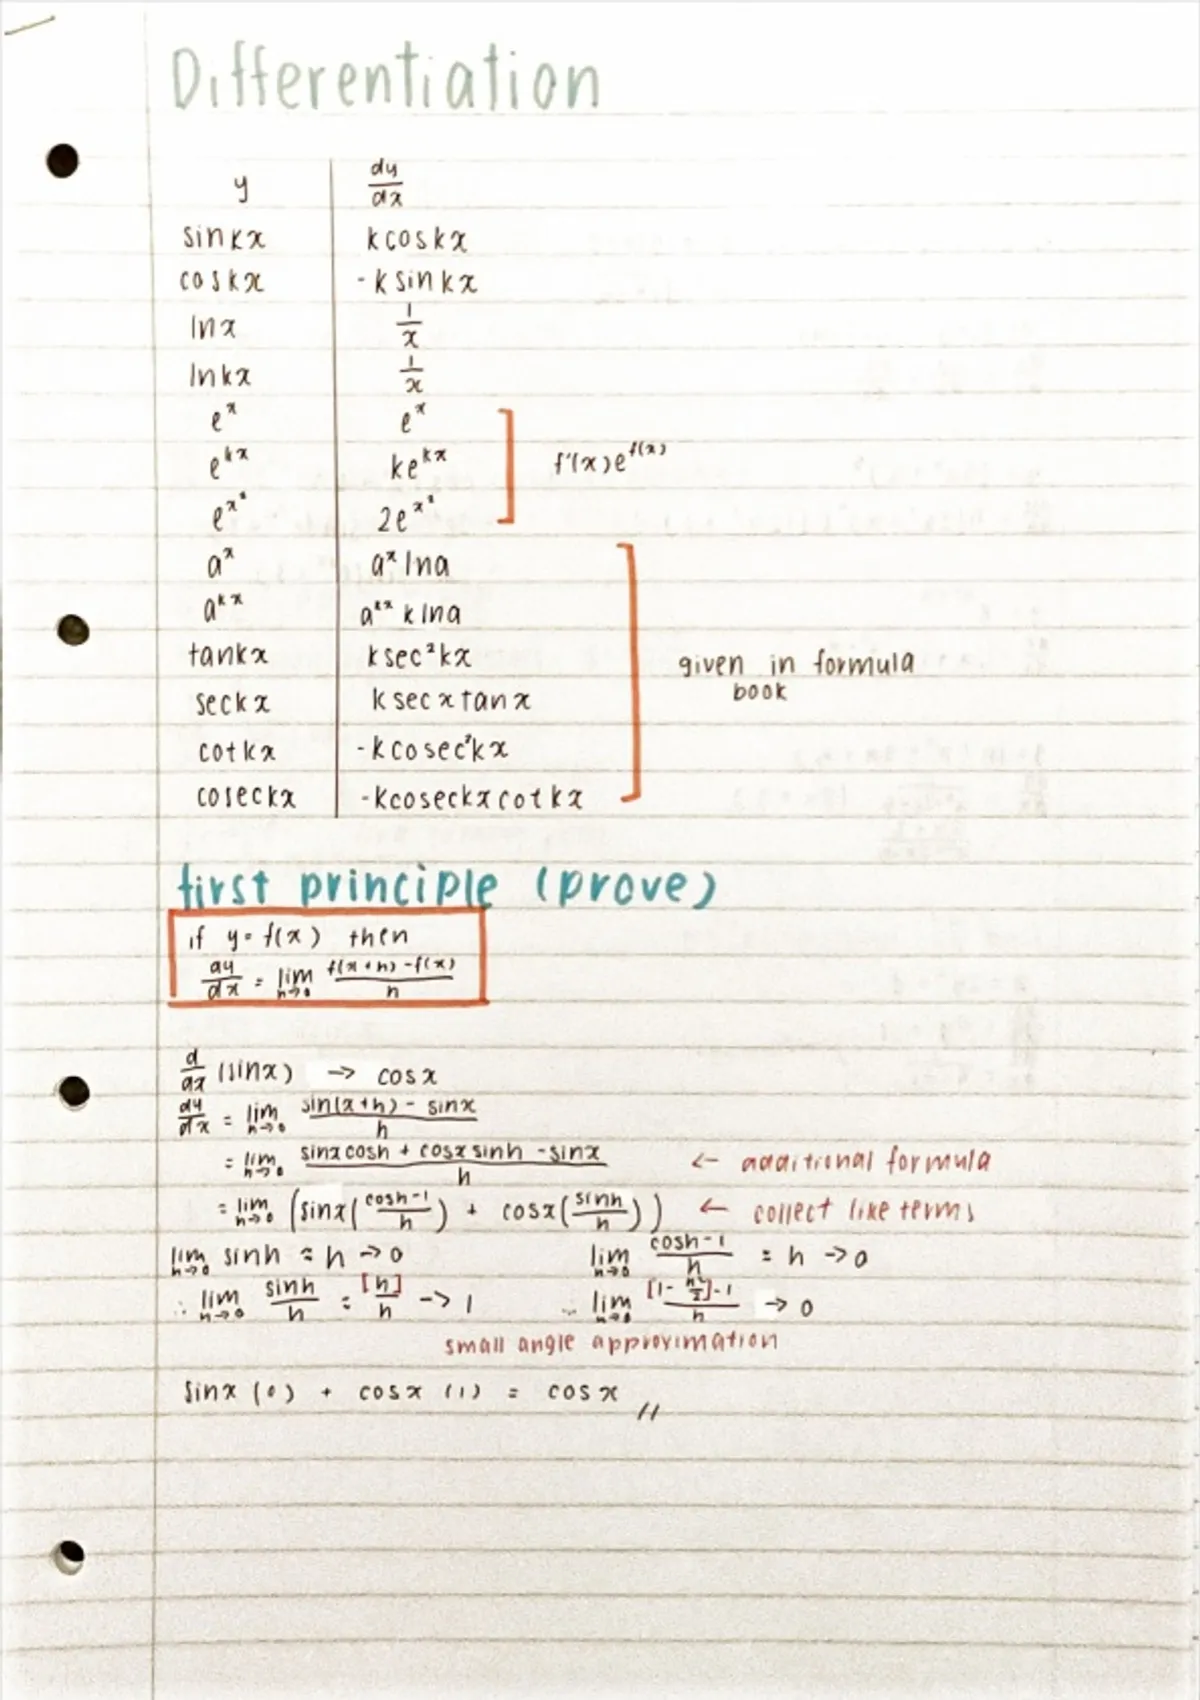 Differentiation
y dy/dx
sinkx kcoskx
coskx -ksinkx
lnx 1/x
lnkx 1/x
e^x e^x
e^kx ke^kx f'(x)e^f(x)
e^x² 2e^x²
a^x a^x lna
a^kx a^kx klna
tankx ksec²kx given in formula
seckx ksecxtanx book
cotkx -kcosec²kx
coseckx -kcoseckxcotkx
first principle (prove)
if y=f(x) then
dy/dx = lim h→0 f(x+h)-f(x)/h
d/dx (sinx) → cosx
dy/dx = lim h→0 sin(x+h)-sinx/h
= lim h→0 sinxcosh + cosxsinh -sinx/h ← additional formula
= lim h→0 (sinx(cosh-1/h) + cosx(sinh/h)) ← collect like terms
lim h→0 sinh ≈ h → 0 lim h→0 cosh-1/h = h → 0
∴ lim h→0 sinh/h = [h]/h → 1 ∴ lim h→0 [1-h²/2]-1/h → 0
small angle approximation
sinx (0) + cosx (1) = cosx //